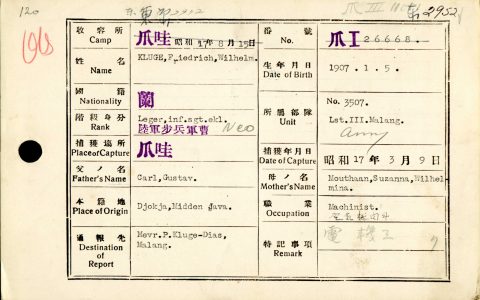 120
2952
106
收容所 Camp 爪哇 昭和17年8月15日
番號 No. 爪I 26668.
姓名 Name KLUGE,Friedrich,Wilhelm.
生年月日 Date of Birth 1907.1.5.
國籍 Nationality 蘭
所屬部隊 Unit No. 3507. Lst.III.Malang. Army
階級身分 Rank Leger,inf.sgt.ekl. 陸軍步兵軍曹 Neo
捕獲場所 Place of Capture 爪哇
捕獲年月日 Date of Capture 昭和17年3月9日
父ノ名 Father's Name Carl,Gustav.
母ノ名 Mother's Name Mouthaan,Suzanna,Wilhelmina.
本籍地 Place of Origin Djokja,Midden Java.
職業 Occupation Machinist.
通報先 Destination of Report Mevr.P.Kluge-Dias, Malang.
特記事項 Remark